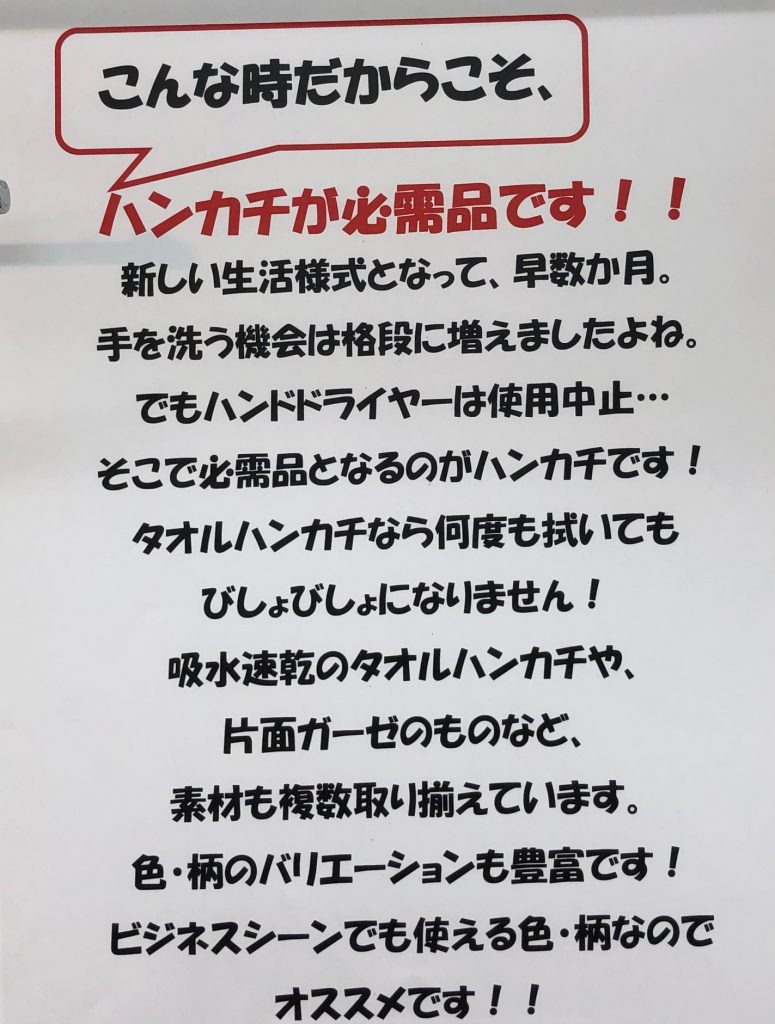 こんな時だからこそ、
ハンカチが必需品です！！
新しい生活様式となって、早数か月。
手を洗う機会は格段に増えましたよね。
でもハンドドライヤーは使用中止…
そこで必需品となるのがハンカチです！
タオルハンカチなら何度も拭いても
びしょびしょになりません！
吸水速乾のタオルハンカチや、
片面ガーゼのものなど、
素材も複数取り揃えています。
色・柄のバリエーションも豊富です！
ビジネスシーンでも使える色・柄なので
オススメです！！